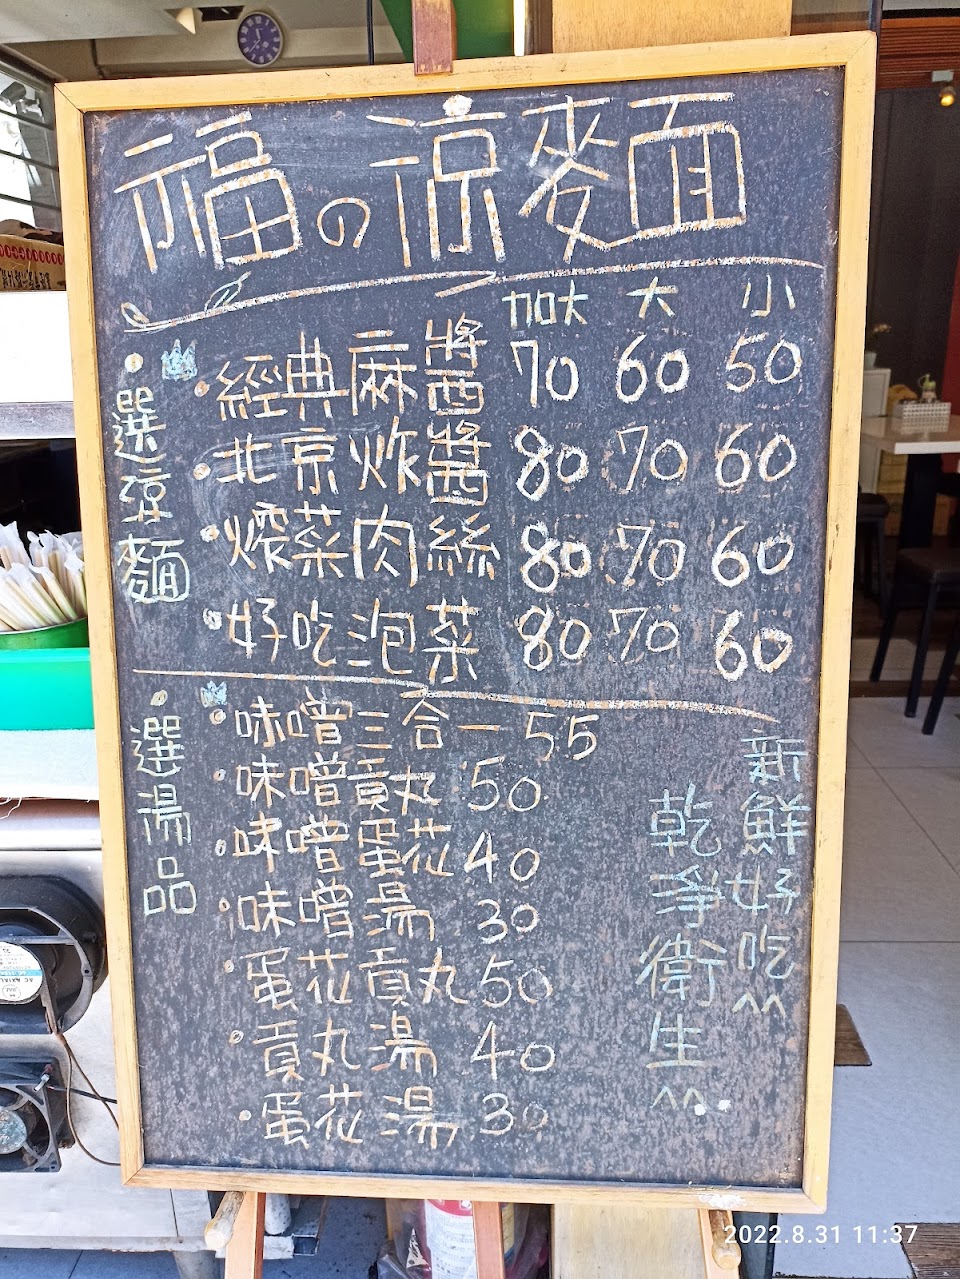 福の涼麵
加大 大 小
選涼麵
經典麻醬 70 60 50
北京炸醬 80 70 60
榨菜肉絲 80 70 60
好吃泡菜 80 70 60
選湯品
味噌三合一 55
味噌貢丸 50
味噌蛋花 40
味噌湯 30
蛋花貢丸 50
貢丸湯 40
蛋花湯 30
新鮮好吃^^
乾淨衛生^^
2022.8.31 11:37